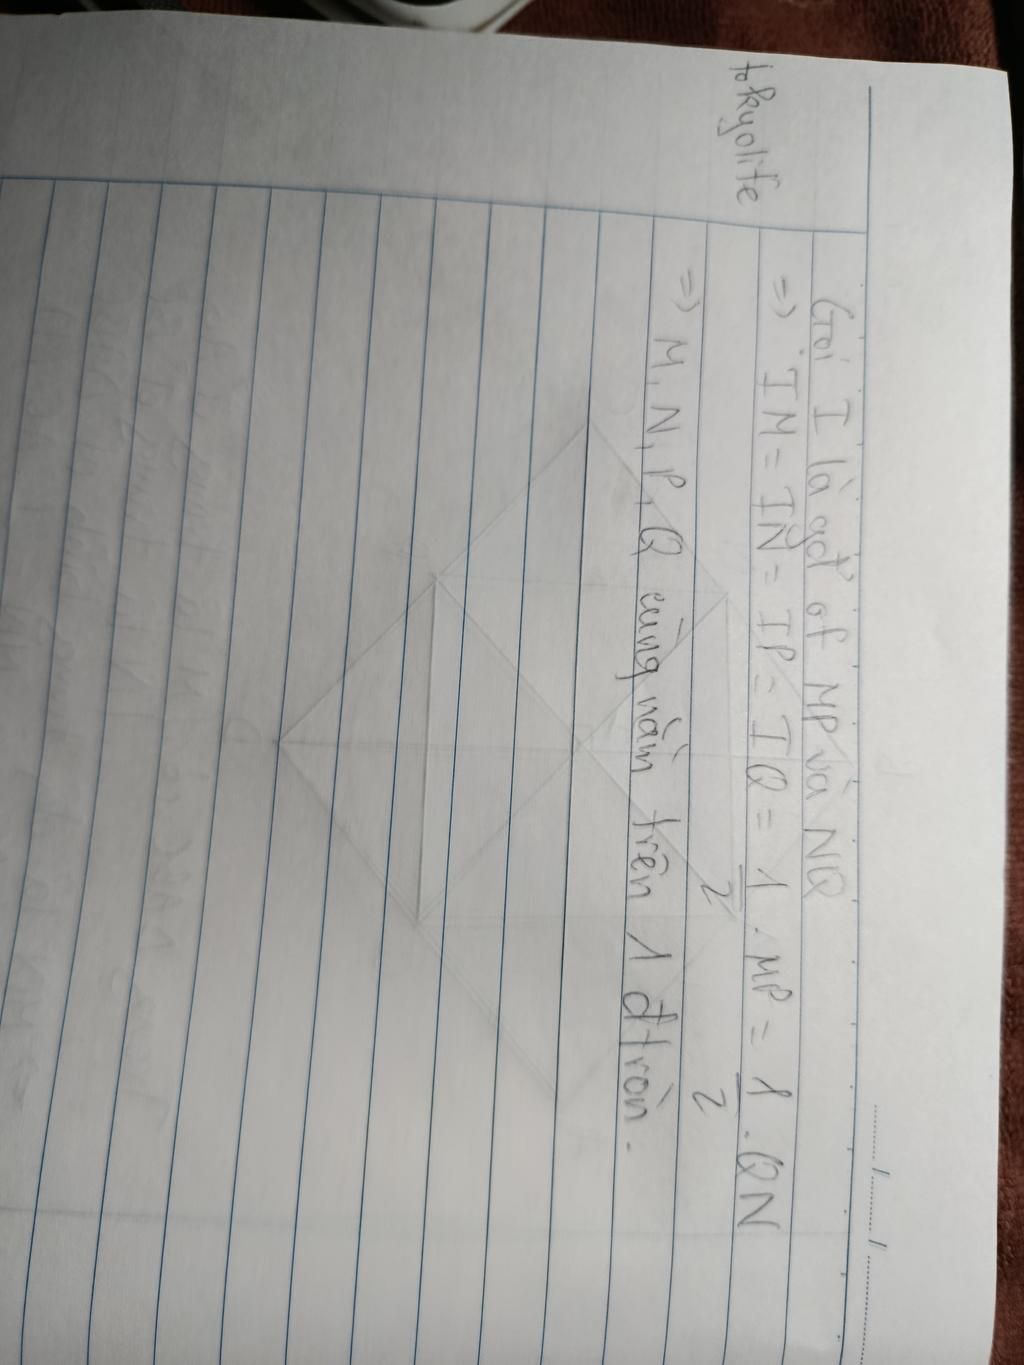 tokyolife
Gọi I là gđ of MP và NQ
=> IM = IN = IP = IQ = 1/2 . MP = 1/2 . QN
=> M, N, P, Q cùng nằm trên 1 đtròn.